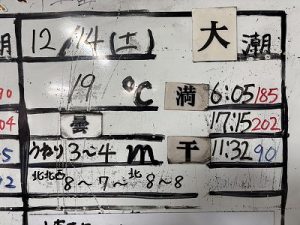 潮 12/14(土) 大潮
90 19℃ 満 6:05 185
04 曇 17:15 202
5 うねり3~4m 干 11:32 90
2 北北西8~7~北8~8